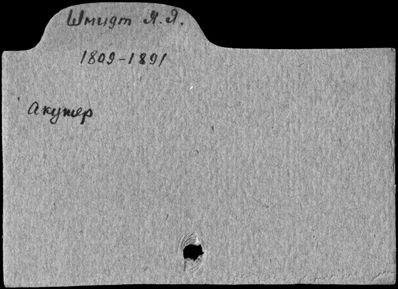 Шмидт Я. Я.
1809-1891
Акушер